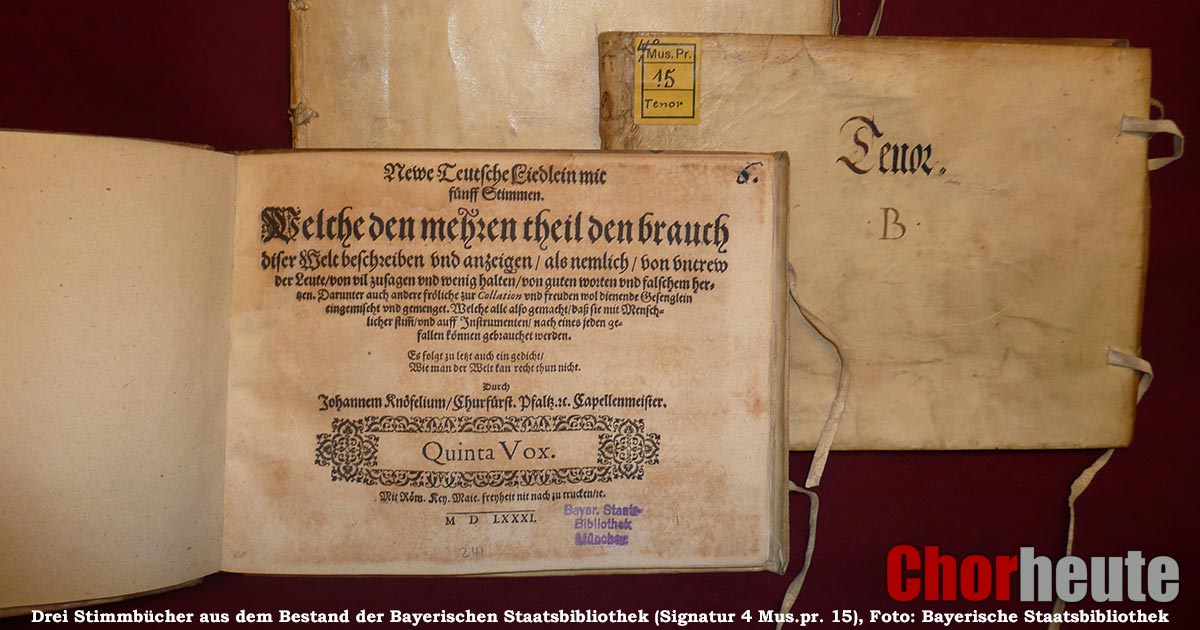 4°
Mus. Pr.
15
Tenor
Tenor.
B.
6.
Newe Teutsche Liedlein mit
fünff Stimmen.
Welche den mehren theil den brauch
diser Welt beschreiben vnd anzeigen / als nemlich / von vntrew
der Leute / von vil zusagen vnd wenig halten / von guten worten vnd falschem her-
tzen. Darunter auch andere fröliche zur Collation vnd freuden wol dienende Gesenglein
eingemischt vnd gemenget. Welche alle also gemacht / daß sie mit Mensch-
licher stim̃ / vnd auff Instrumenten / nach eines jeden ge-
fallen können gebrauchet werden.
Es folgt zu letzt auch ein gedicht /
Wie man der Welt kan recht thun nicht.
Durch
Johannem Knöfelium / Churfürst. Pfaltz.ꝛc. Capellenmeister.
Quinta Vox.
Mit Röm. Key. Maie. freyheit nit nach zu trucken / ꝛc.
M D LXXXI.
Bayer. Staats-
Bibliothek
München
241
Chorheute
Drei Stimmbücher aus dem Bestand der Bayerischen Staatsbibliothek (Signatur 4 Mus.pr. 15), Foto: Bayerische Staatsbibliothek